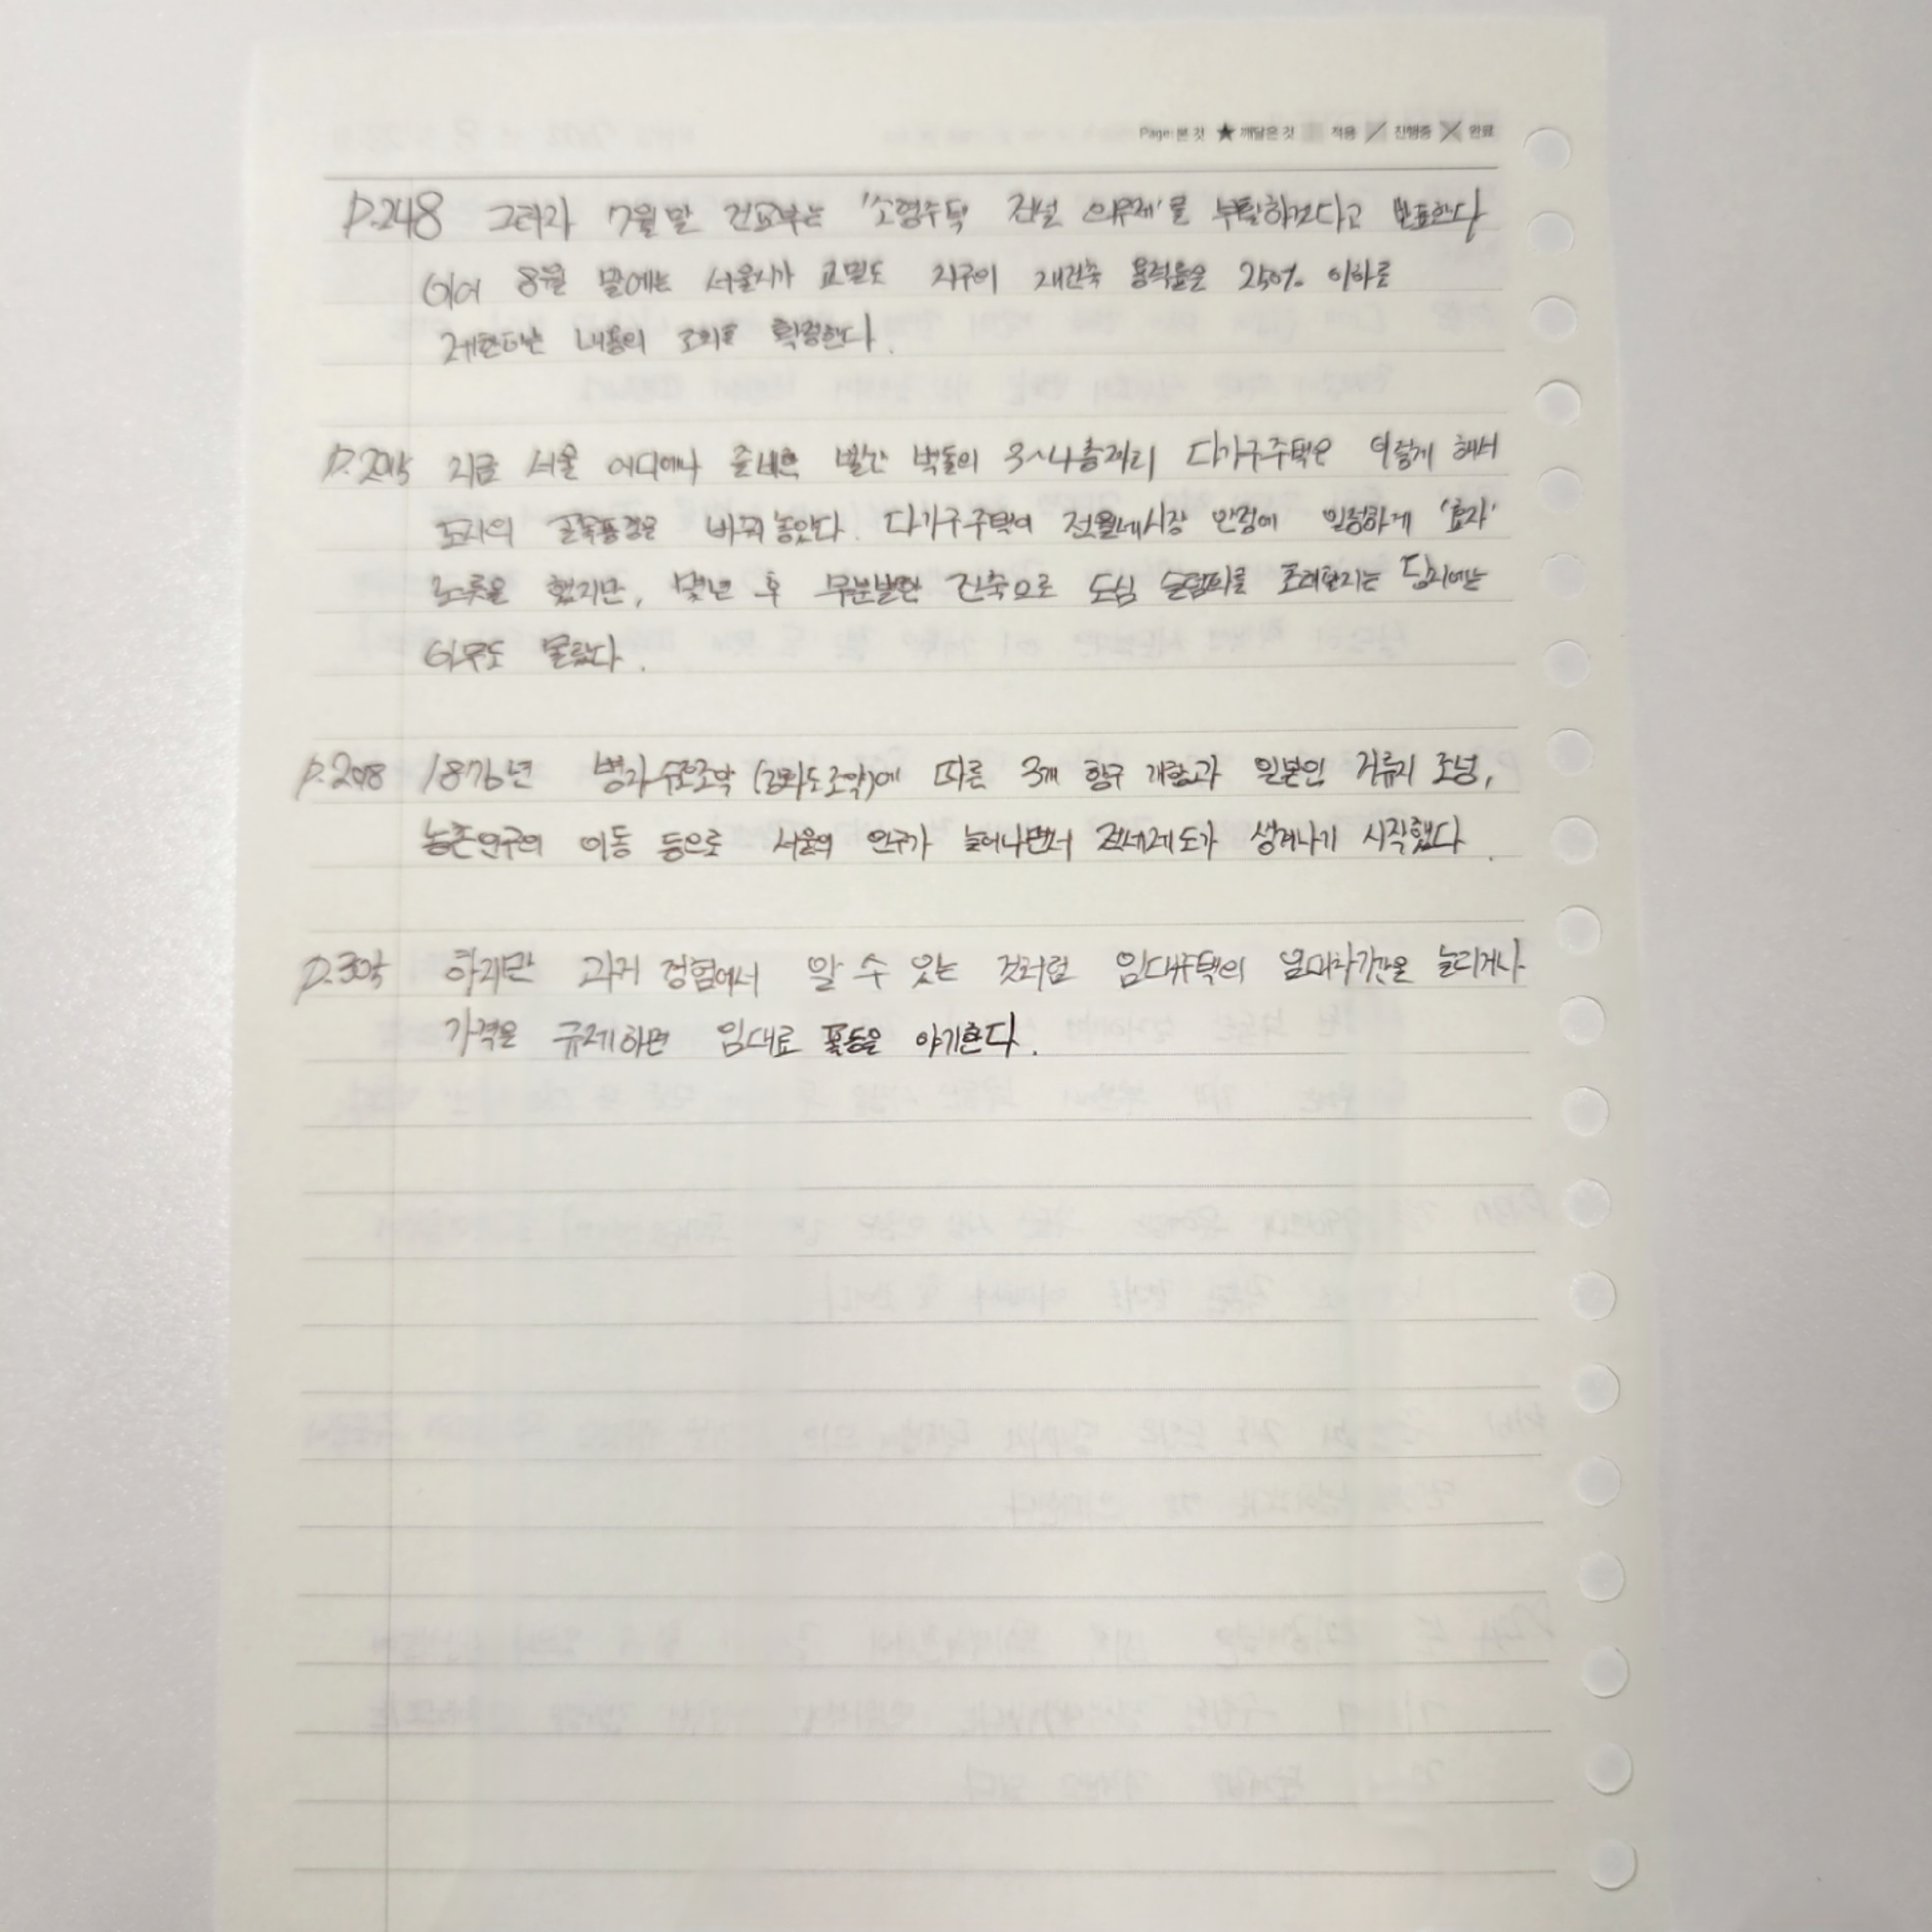 Page:본 것 ★ 깨달은 것 ■ 적용 ╱ 진행중 ╳ 완료
P.248 그러자 7월 말 건교부는 '소형주택 건설 의무제'를 부활하겠다고 발표한다
이어 8월 말에는 서울시가 고밀도 지구의 재건축 용적률을 250% 이하로
제한하는 내용의 조치를 확정한다.
지금 서울 어디에나 즐비한 빨간 벽돌의 3~4층짜리 다가구주택은 이렇게 해서
도시의 골목풍경을 바꿔 놓았다. 다가구주택이 전월세시장 안정에 일정하게 '효자'
노릇을 했지만, 몇년 후 무분별한 건축으로 도심 슬럼화를 초래할지는 당시에는
아무도 몰랐다.
1876년 병자수호조약 (강화도조약)에 따른 3개 항구 개항과 일본인 거류지 조성,
농촌인구의 이동 등으로 서울의 인구가 늘어나면서 전세제도가 생겨나기 시작했다.
하지만 과거 경험에서 알 수 있는 것처럼 임대주택의 임대차기간을 늘리거나
가격을 규제하면 임대료 폭등을 야기한다.